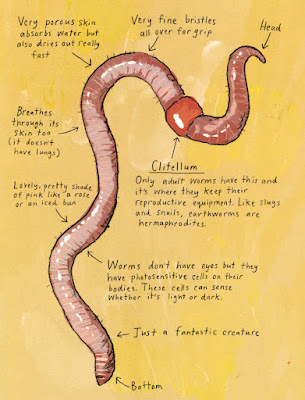 Very porous skin
absorbs water but
also dries out really
fast
Very fine bristles
all over for grip
Head
Breathes
through its
skin too
(it doesn't
have lungs)
Clitellum
Only adult worms have this and
it's where they keep their
reproductive equipment. Like slugs
and snails, earthworms are
hermaphrodites.
Lovely, pretty shade
of pink like a rose
or an iced bun
Worms don't have eyes but they
have photosensitive cells on their
bodies. These cells can sense
whether it's light or dark.
Just a fantastic creature
Bottom